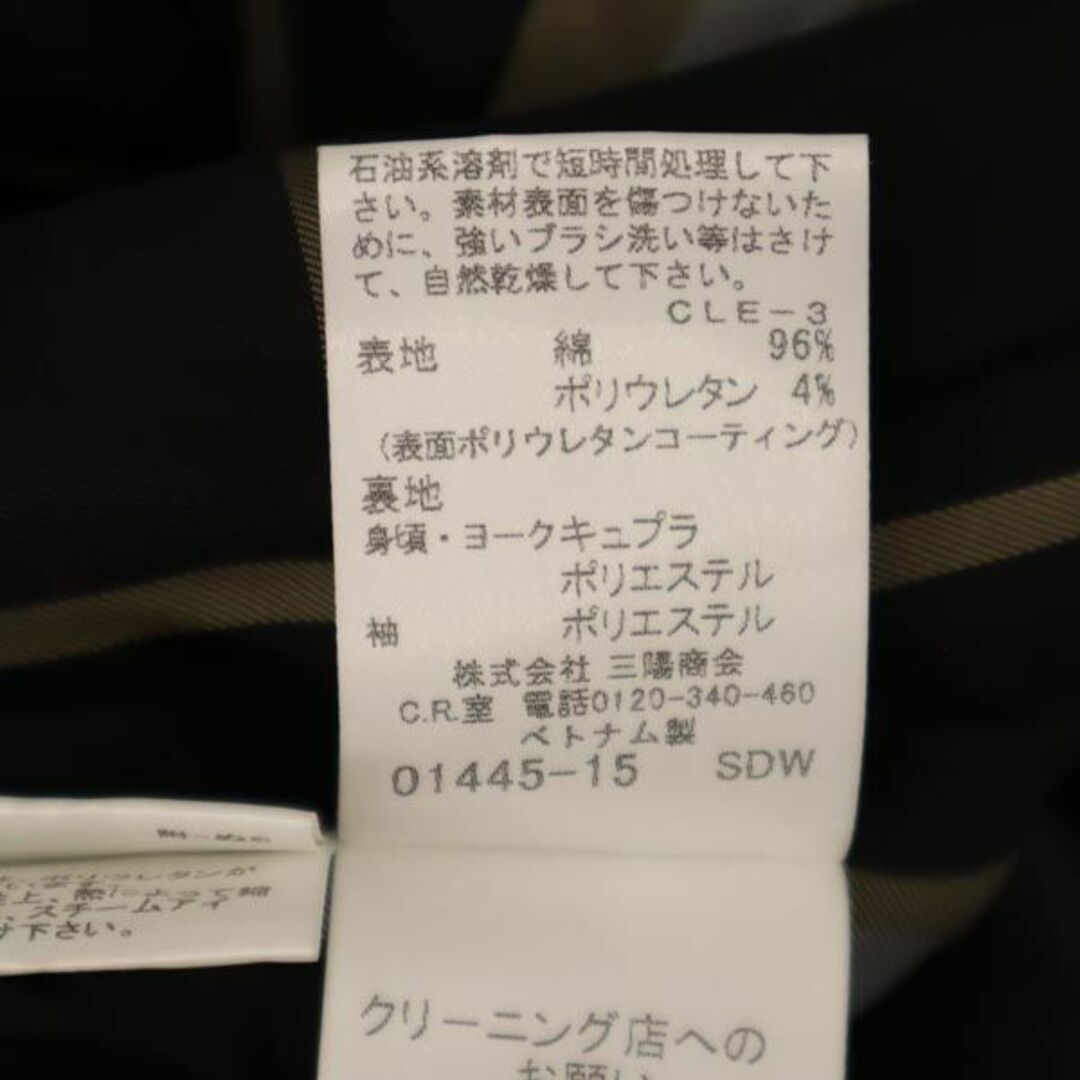 石油系溶剤で短時間処理して下
さい。素材表面を傷つけないた
めに、強いブラシ洗い等はさけ
て、自然乾燥して下さい。
CLE-3
表地 綿 96%
ポリウレタン 4%
(表面ポリウレタンコーティング)
裏地
身頃・ヨークキュプラ
ポリエステル
袖 ポリエステル
株式会社 三陽商会
C.R.室 電話0120-340-460
ベトナム製
01445-15 SDW
ポリウレタンが
上、熱によって縮
、スチームアイ
け下さい。
クリーニング店への
お願い